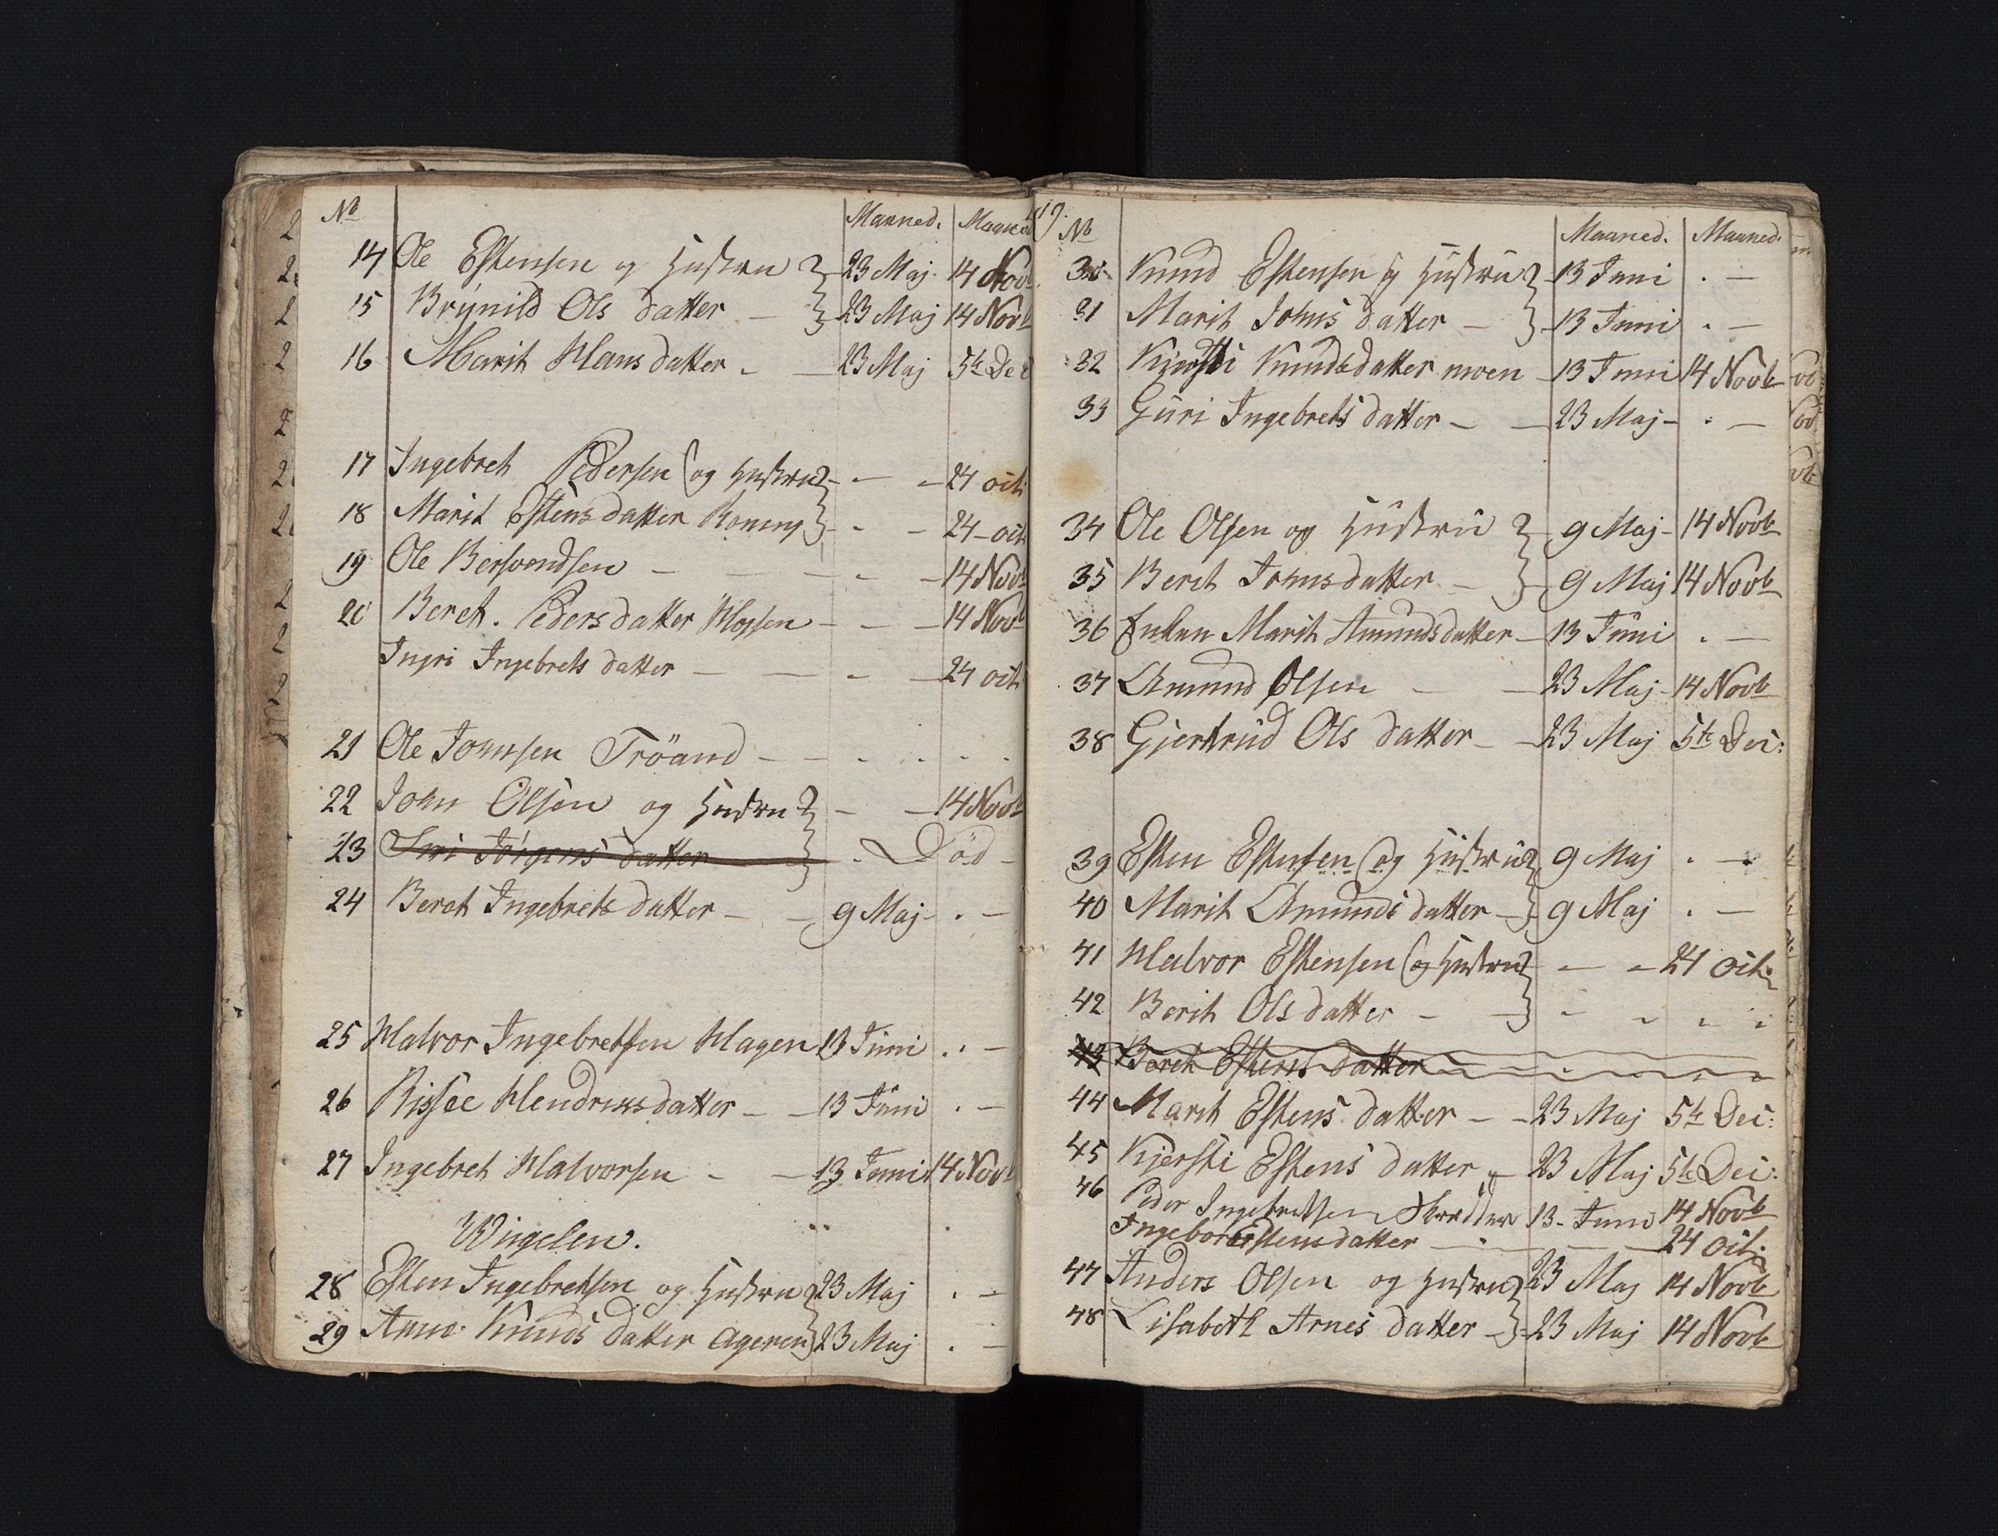 No Maaned. Maaned
14 Ole Estensen og Hustru 23 Maj 14 Novb
15 Brÿnild Ols datter — 23 Maj 14 Novb
16 Marit Hans datter — 23 Maj 5te Dec
17 Ingebret Pedersen (og Hustru — — 24 oct:
18 Marit Estens datter — — 24 — oct
19 Ole Bersvendsen — — — — — 14 Novb
20 Beret Peders datter Mossen — — — 14 Novb
Ingri Ingebrets datter — — — — 24 oct:
21 Ole Johnsen Tröand — — . . . .
22 John Olsen og Hustru — — 14 Novb
23 Siri Jörgens datter — . Död —
24 Beret Ingebrets datter — — 9 Maj — . —
25 Halvor Ingebretsen Hagen 13 Juni . . —
26 Hendrixs datter — — 13 Juni . —
27 Ingebret Halvorsen — — 13 Juni 14 Novb
Wingelen.
28 Esten Ingebretsen og Hustru 23 Maj . —
29 Anne Knuds datter ageren 23 Maj . —
19.
No Maaned. Maaned.
30 Knud Estensen og Hustru 13 Juni . —
31 Marit Johns datter — 13 Juni . —
32 Kjersti Knudsdatter moen — 13 Juni 14 Novb
33 Guri Ingebrets datter — — 23 Maj — . —
34 Ole Olsen og Hustru 9 Maj — 14 Novb
35 Berit Johns datter — 9 Maj 14 Novb
36 Marit Amunds datter — 13 Juni . —
37 Amund Olsen — — 23 Maj — 14 Novb
38 Gjertrud Ols datter — — 23 Maj 5te Dec:
39 Esten Estensen (og Hustru 9 Maj . —
40 Marit Amunds datter — 9 Maj . —
41 Halvor Estensen (og Hustru — — 24 oct.
42 Berit Ols datter — —
43 Beret Estens datter
44 Marit Estens datter — — 23 Maj 5te Dec:
45 Kjersti Estens datter — 23 Maj 5te Dec:
46 Peder Ingebretsen Skredder 13. Juni 14 Novb
Ingebor Estensdatter — — — 24 oct.
47 Anders Olsen og Hustru 23 Maj 14 Novb
48 Lisabeth Arnes datter — 23 Maj 14 Novb